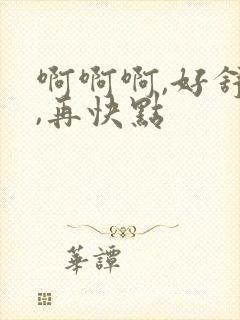 啊啊啊,好舒
,再快點
華譚